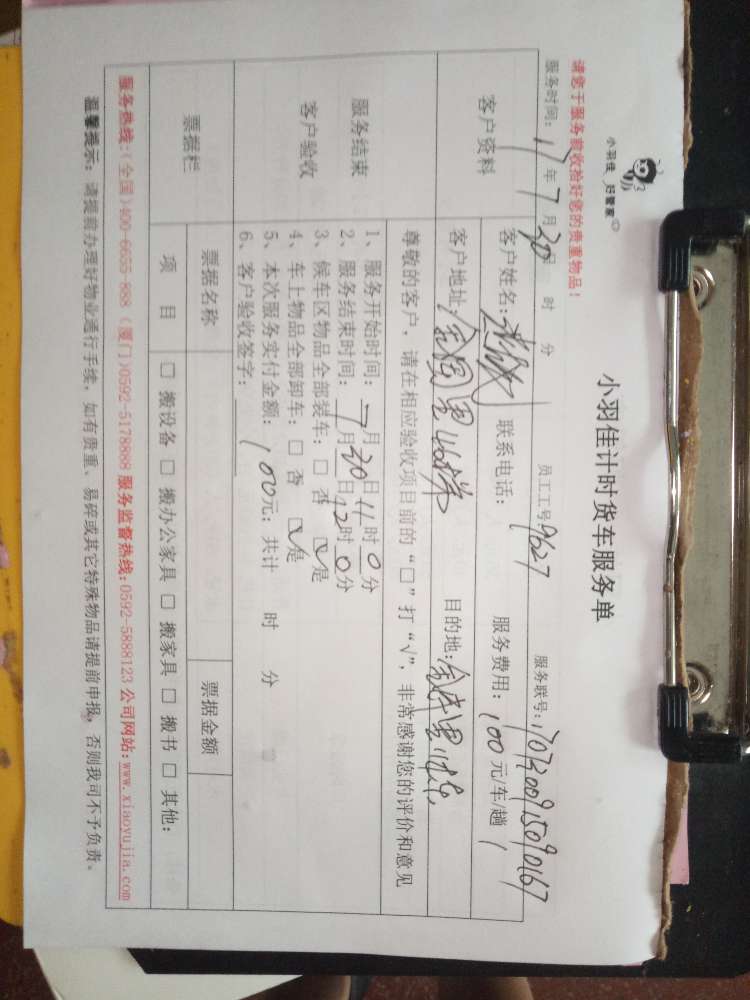 小羽佳 好管家
小羽佳计时货车服务单
请您于服务前收拾好您的贵重物品！
服务时间：17年7月30日 时 分 员工工号9627 服务联号：
客户资料
客户姓名： 联系电话： 服务费用：100元/车/趟
客户地址： 目的地：
尊敬的客户，请在相应验收项目前的“□”打“√”，非常感谢您的评价和意见
服务结束
客户验收
1、服务开始时间：7月30日11时0分
2、服务结束时间：7月30日12时0分
3、候车区物品全部装车：□ 否 √是
4、车上物品全部卸车：□ 否 √是
5、本次服务实付金额：100元；共计 时 分
6、客户验收签字：
票据栏
票据名称 票据金额
项 目 □ 搬设备 □ 搬办公家具 □ 搬家具 □ 搬书 □ 其他：
服务热线：(全国)400-6655-888（厦门)0592-5178888 服务监督热线：0592-5888123 公司网站：www.xiaoyujia.com
温馨提示：请提前办理好物业通行手续，如有贵重、易碎或其它特殊物品请提前申报，否则我司不予负责。